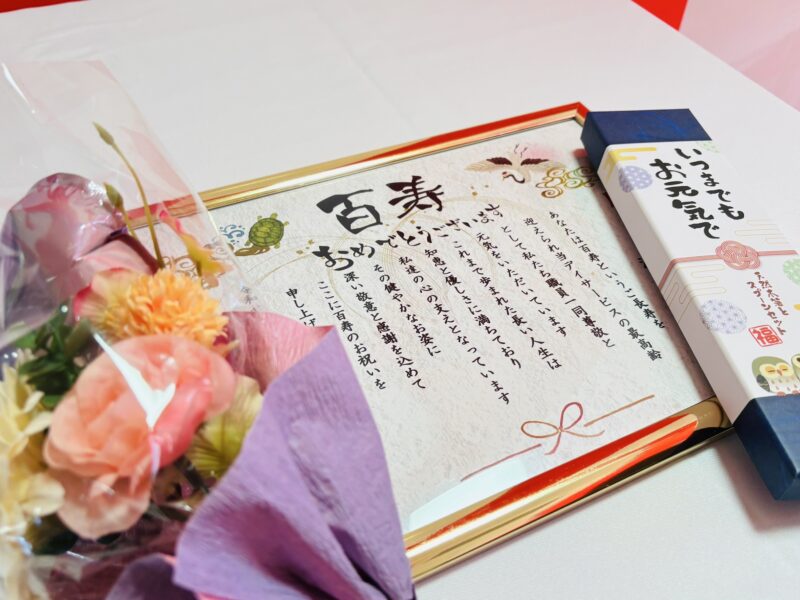 百寿
おめでとうございます
あなたは百寿というご長寿を
迎えられ当デイサービスの最高齢
として私たち職員一同尊敬と
元気をいただいています
これまで歩まれた長い人生は
知恵と優しさに満ちており
私達の心の支えとなっています
その健やかなお姿に
深い敬意と感謝を込めて
ここに百寿のお祝いを
申し上げ
いつまでも
お元気で
福